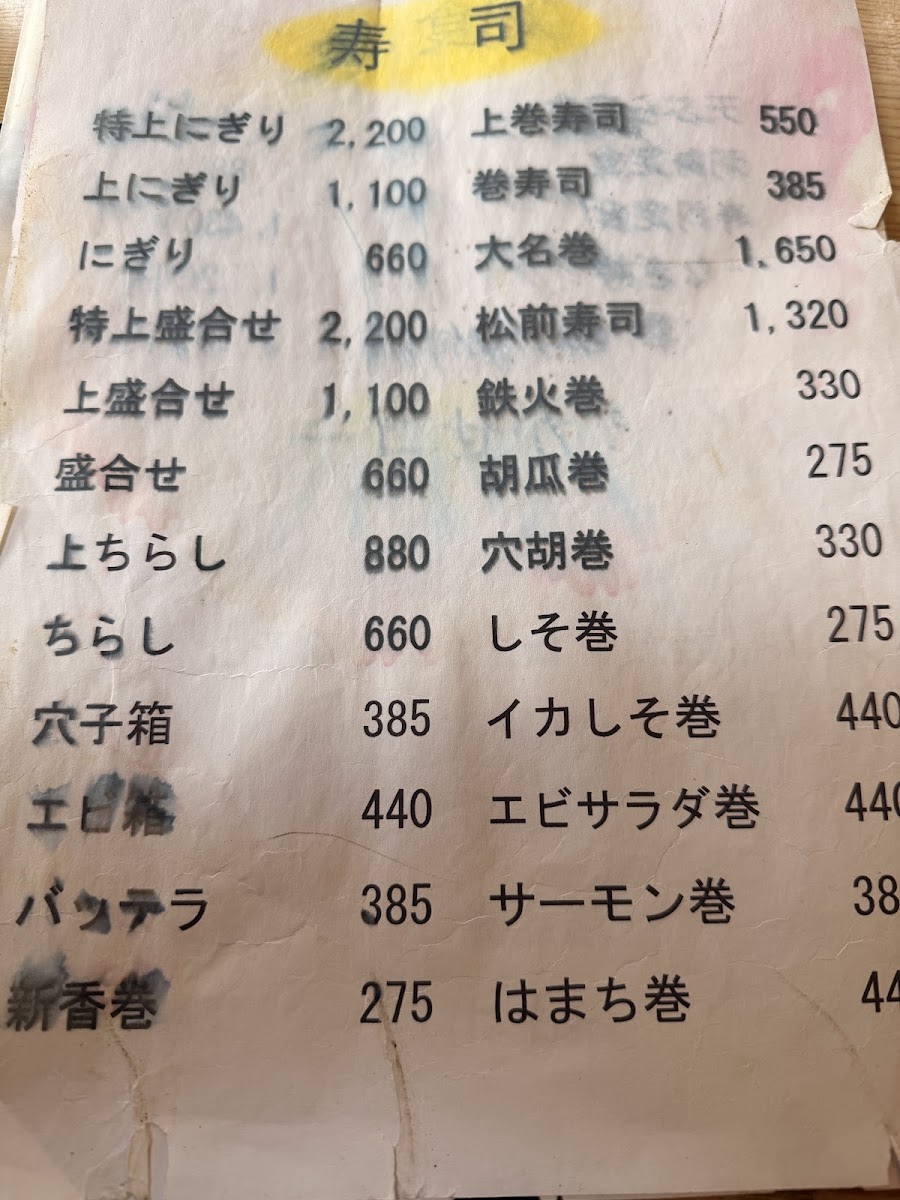 寿司
特上にぎり 2,200 上巻寿司 550
上にぎり 1,100 巻寿司 385
にぎり 660 大名巻 1,650
特上盛合せ 2,200 松前寿司 1,320
上盛合せ 1,100 鉄火巻 330
盛合せ 660 胡瓜巻 275
上ちらし 880 穴胡巻 330
ちらし 660 しそ巻 275
穴子箱 385 イカしそ巻 440
エビ箱 440 エビサラダ巻 440
バッテラ 385 サーモン巻 38
新香巻 275 はまち巻 44